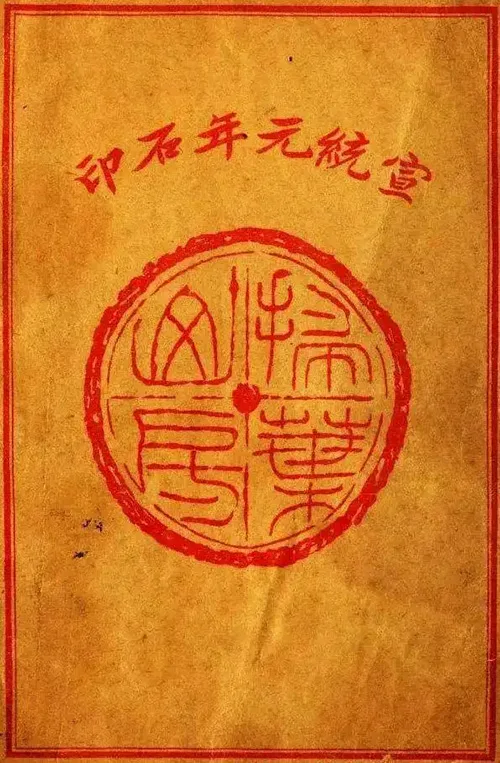 宣統元年石印
掃葉山房